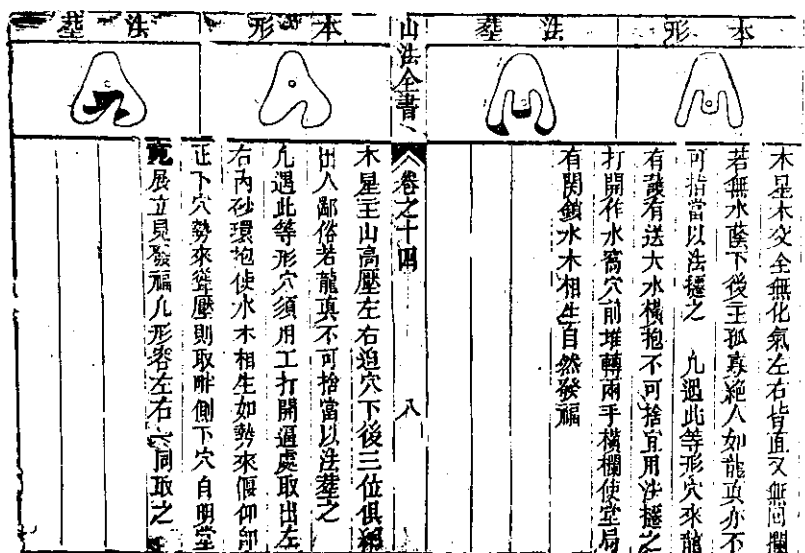 本形
葬法
木星木交全無化氣左右皆直又無回攔
若無水蔭下後主孤寡絶人如龍真亦不
可捨當以法葬之 凡遇此等形穴來龍
有護有送大水橫抱不可捨宜用法葬之
打開作水窩穴前堆轉兩手橫欄使堂局
有関鎖水木相生自然發福
山法全書
卷之十四
八
本形
葬法
木星主山高壓左右迫穴下後三位俱絕
出人鄙俗若龍真不可捨當以法葬之
凡遇此等形穴須用工打開逼處取出左
右內砂環抱使水木相生如勢來偃仰即
正下穴勢來聳壓則取畔側下穴自明堂
寛展立見發福凡形容左右同取之